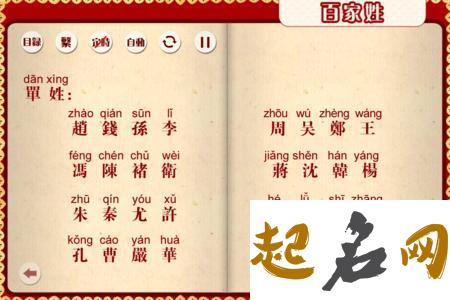 百家姓
目錄 繁 定時 自動
dān xìng
單姓:
zhào qián sūn lǐ
趙錢孫李
féng chén chǔ wèi
馮陳褚衛
zhū qín yóu xǔ
朱秦尤許
kǒng cáo yán huà
孔曹嚴華
zhōu wú zhèng wáng
周吴鄭王
jiǎng shěn hán yáng
蔣沈韓楊
起名网